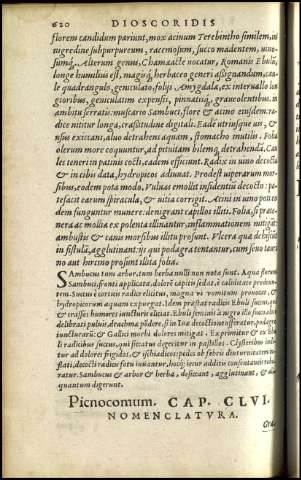 620 DIOSCORIDIS
florem candidum pariunt, mox acinum Terebintho similem, in
nigredine subpurpureum, racemosum, succo madentem, uino-
sumq́;. Alterum genus, Chamaacte uocatur, Romanis Ebulus,
longe humilius est, magisq́; herbaceo generi assignandum, cau-
le quadrangulo, geniculato. folijs Amygdalæ, ex interuallo lon
gioribus, geniculatim expensis, pinnatisq́;, graueolentibus, in
ambitu serratis: muscario Sambuci, flore & acino eiusdem. ra-
dice nititur longa, crassitudine digitali. Eadē utriusque uis, &
usus exiccandi, aluo detrahendi aquam, stomacho inutilis. Folia
olerum more coquuntur, ad pituitam bilemq́; detrahendā. Cau
les teneri in patinis cocti, eadem efficiunt. Radix in uino decocta
& in cibis data, hydropicos adiuuat. Prodest uiperarum mor-
sibus, eodem pota modo. Vuluas emollit insidentiū decocto: pa-
tefacit earum spiracula, & uitia corrigit. Acini in uino poti eo
dem funguntur munere: denigrant capillos illiti. Folia, si præte-
nera ac mollia ex polenta illinantur, inflammationem mitigāt:
ambustis & canis morsibus illitu prosunt. Vlcera quæ dehiscūt
in fistulā, agglutinant: ijs qui podagra tentantur, cum seuo tauri
no aut hircino prosunt illita folia.
SAmbucus tum arbor, tum herba nulli non nota sunt. Aqua florum
Sambuci, fronti applicata, dolorē capitis sedat, è caliditate prodeun-
tem. Succus è cortice radicis elicitus, magna ui uomitum prouocat, &
hydropicorum aquam expurgat. Idem præstat radicis Ebuli succus, qui
& crasses humores iuncturis elicit. Ebuli seminis à nigro illo succo
delibrati puluis, drachmæ pōdere, si in Iuæ decoctione hauriatur, podagræ
iuncturarū: & Gallici morbi dolores mitigat. Exprimitur & ex Ebu
li radicibus succus, qui siccatus digeritur in pastillos. Clysteribus indi-
tur ad dolores frigidos, & ischiadicos: pedes ob febris diuturnitatem in-
flati, decocti radicū fotu iuuantur, hocq́; iecur additiu consuetandis robo-
ratur. Sambucus & arbor & herba, desiccant, agglutinant, & ali-
quantum digerunt.
Picnocomum. CAP. CLVI.
NOMENCLATVRA.
Græ-